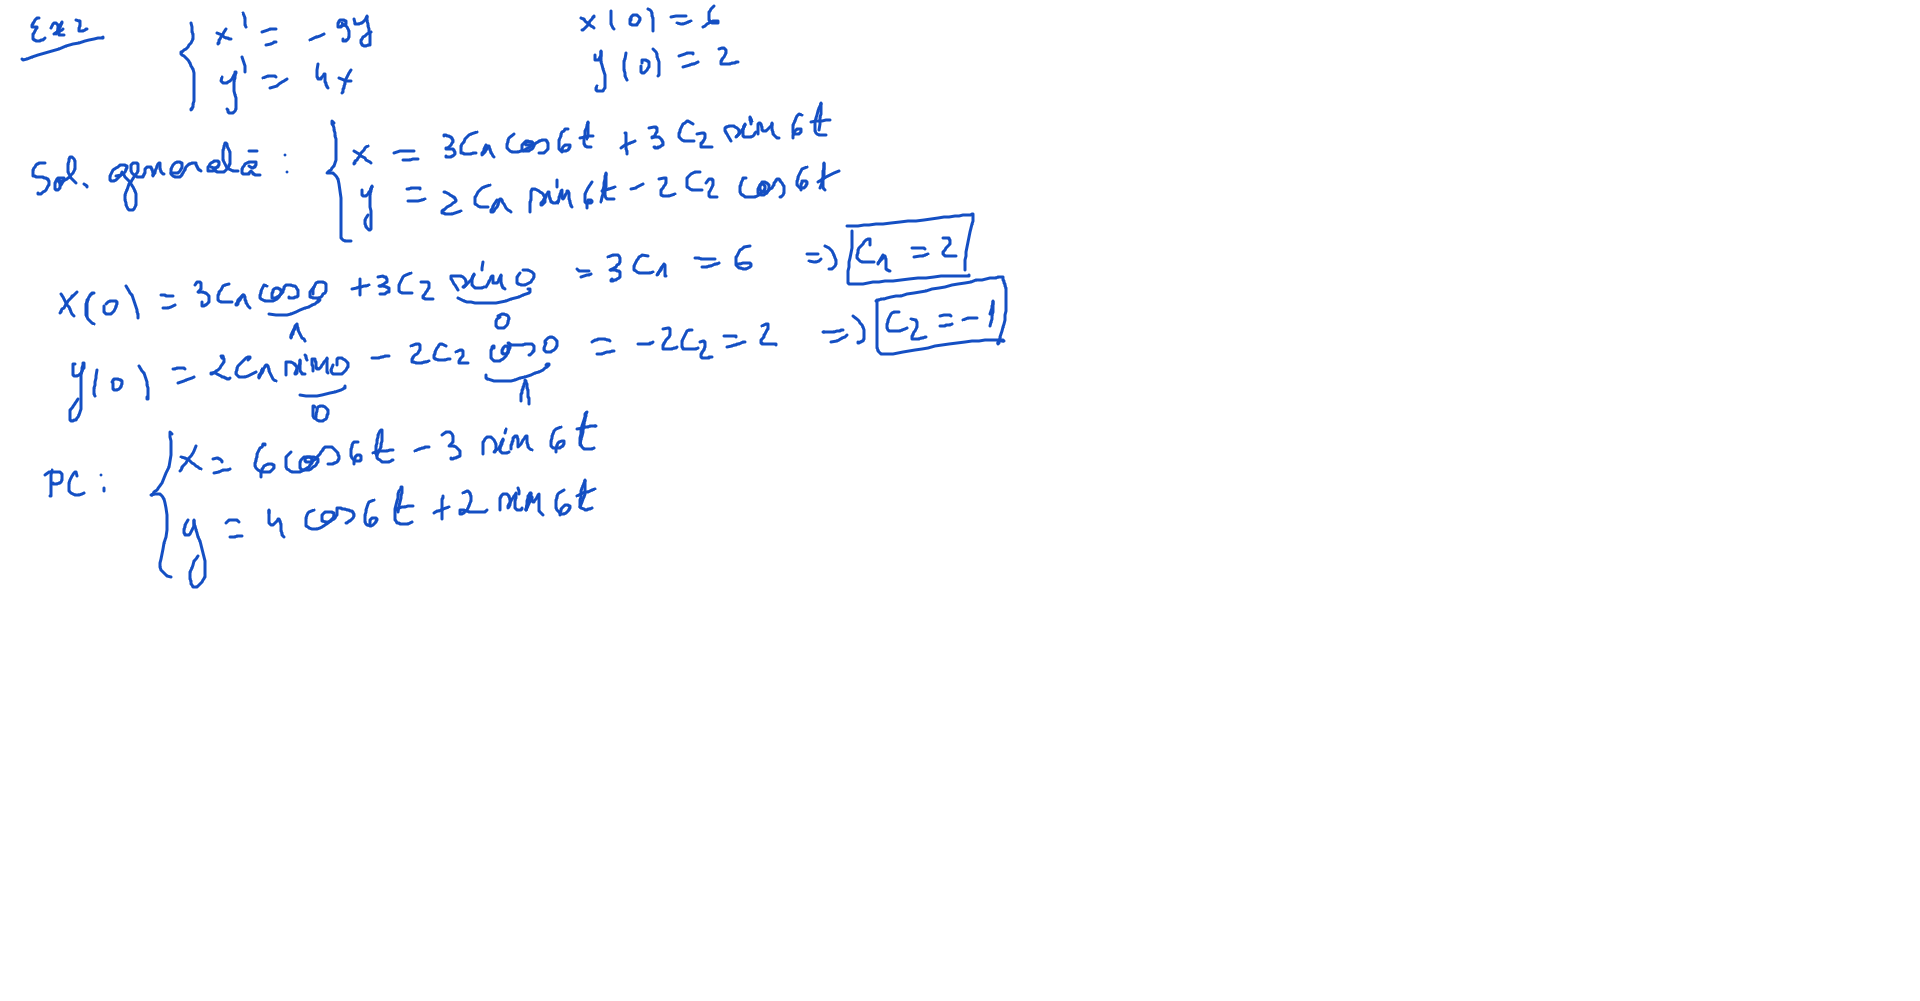 Ex 2 { x' = -9y x(0) = 6
y' = 4x y(0) = 2
Sol. generală : { x = 3C₁ cos6t + 3C₂ sin6t
y = 2C₁ sin6t - 2C₂ cos6t
x(0) = 3C₁ cos0 + 3C₂ sin0 = 3C₁ = 6 => C₁ = 2
1 0
y(0) = 2C₁ sin0 - 2C₂ cos0 = -2C₂ = 2 => C₂ = -1
0 1
PC : { x = 6cos6t - 3 sin6t
y = 4 cos6t + 2 sin6t